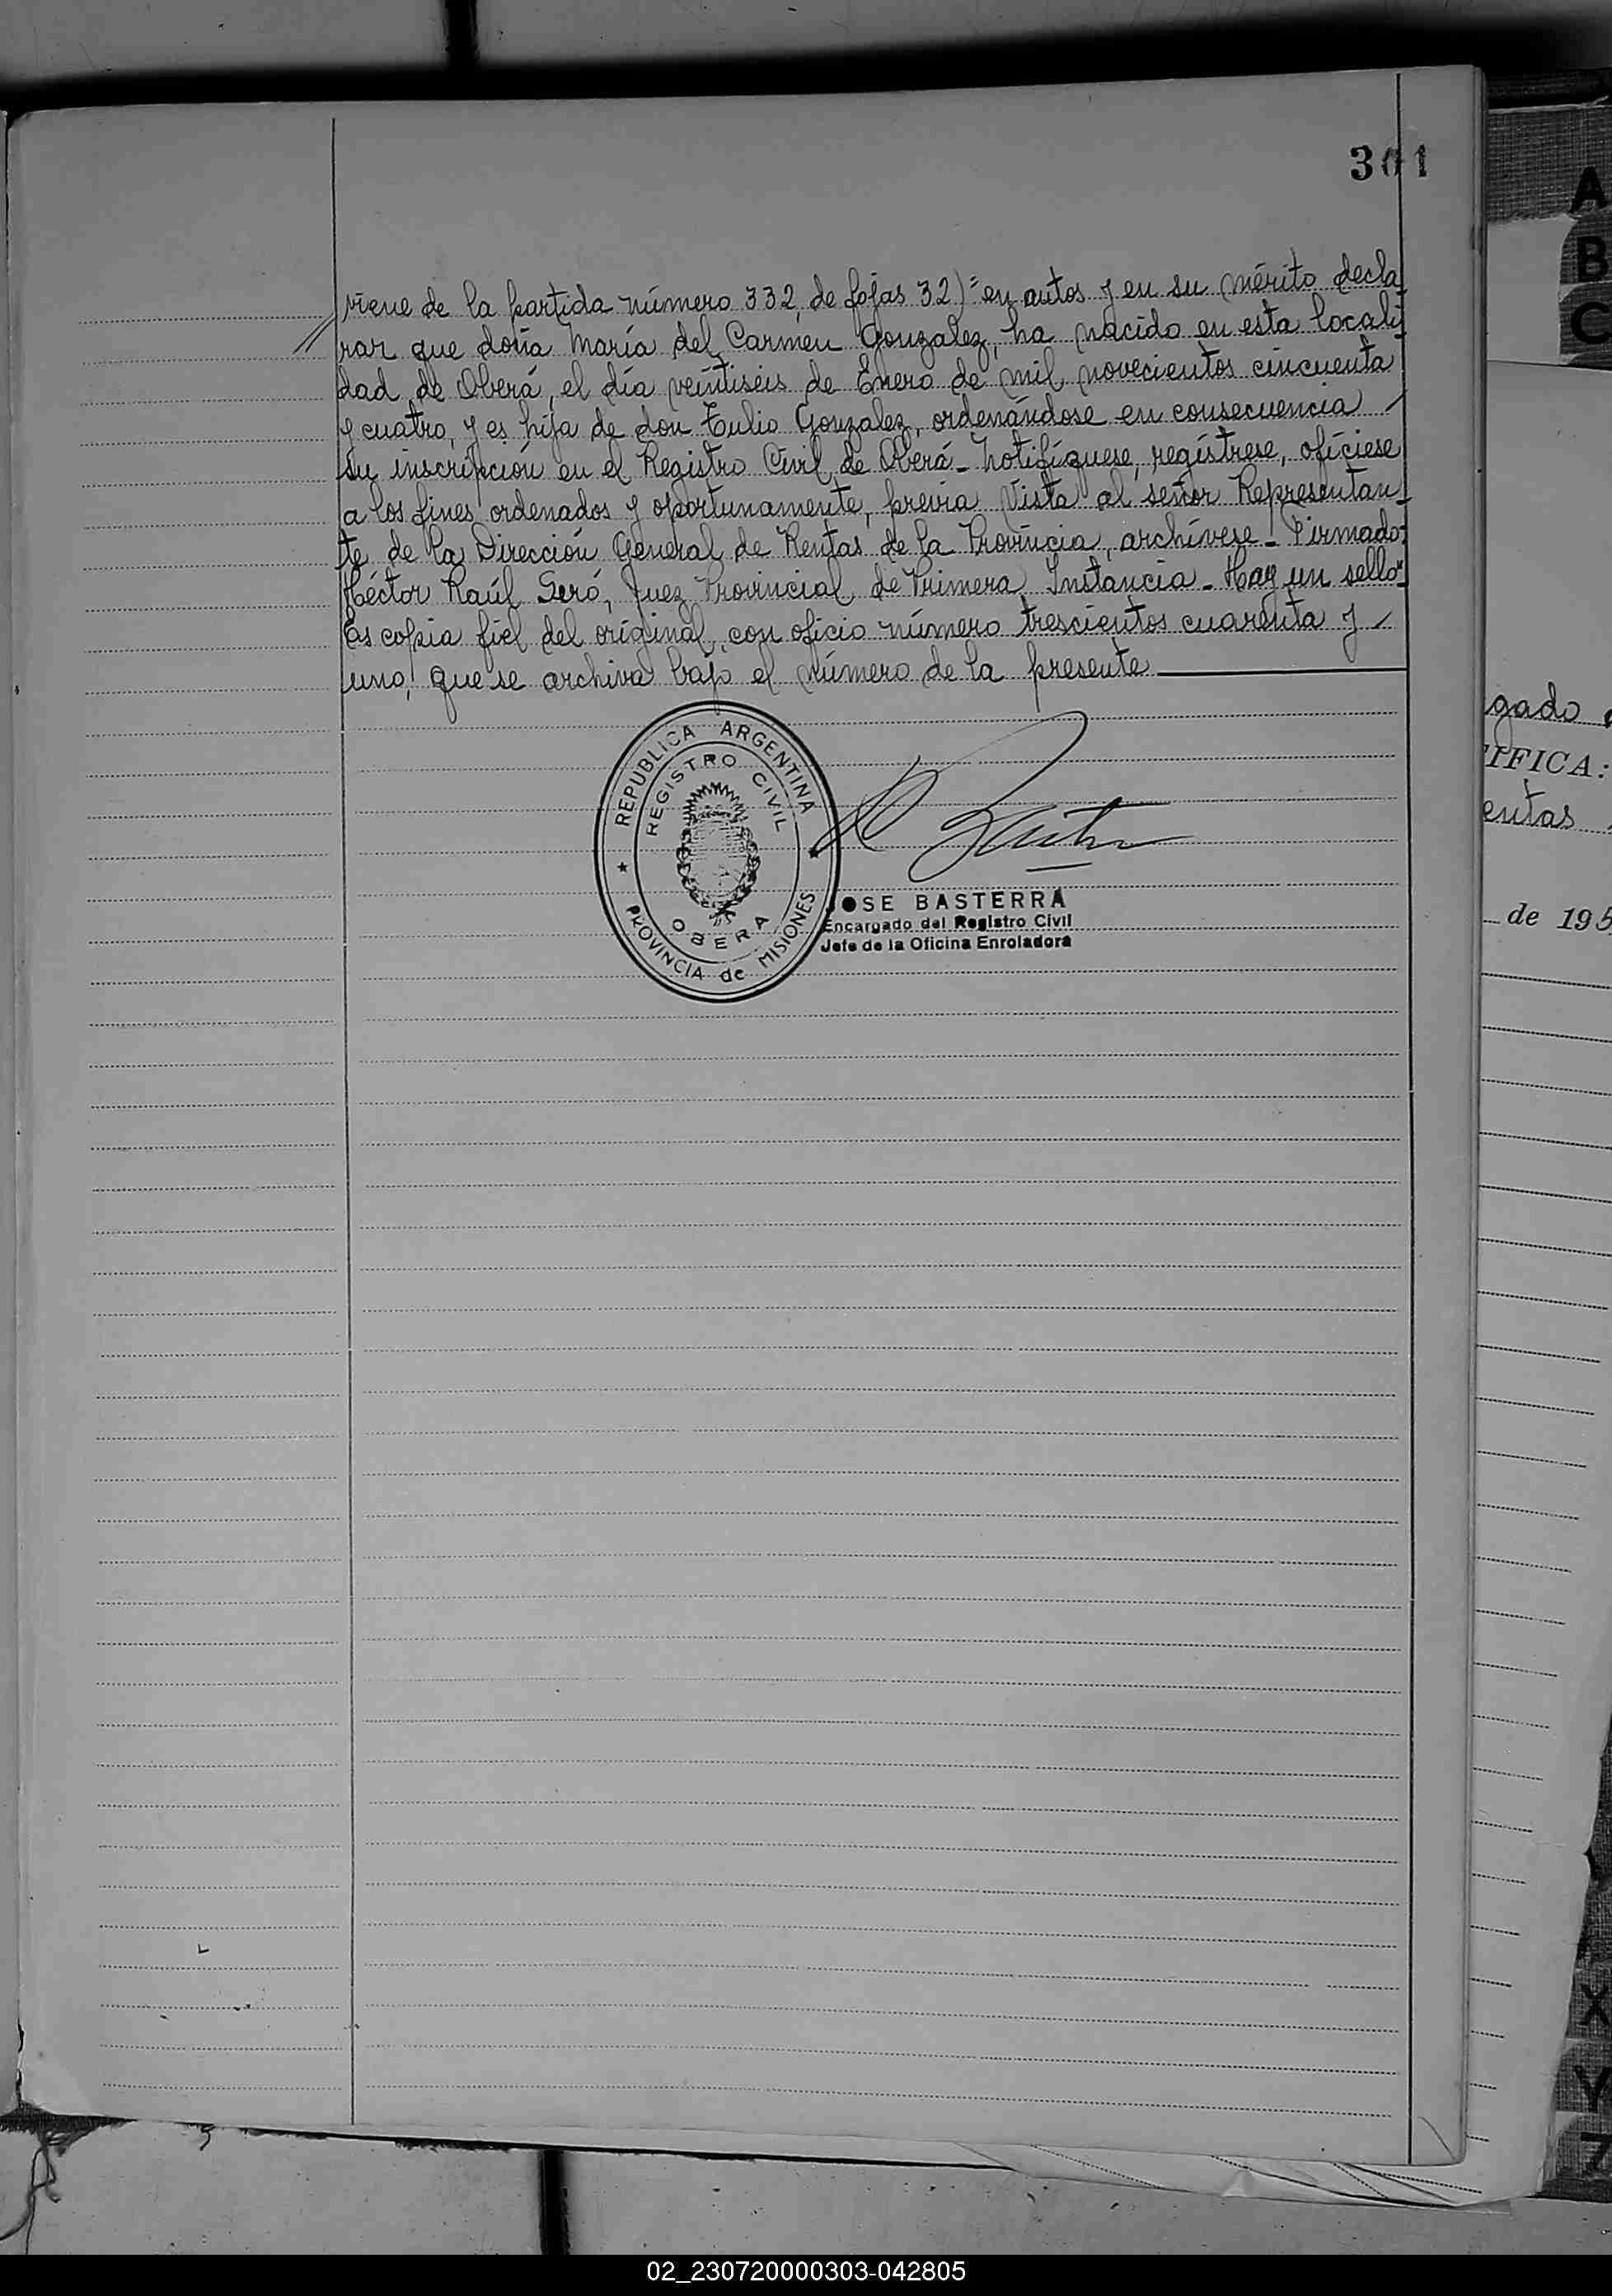 301
viene de la partida número 332, de fojas 32)= en autos y en su mérito decla-
// rar que doña María del Carmen Gonzalez, ha nacido en esta locali-
dad de Oberá, el día veintiseis de Enero de mil novecientos cincuenta
y cuatro, y es hija de don Tulio Gonzalez, ordenándose en consecuencia
su inscripción en el Registro Civil de Oberá - Notifíquese, regístrese, ofíciese
a los fines ordenados y oportunamente, previa Vista al señor Representan-
te de la Dirección General de Rentas de la Provincia, archívese - Firmado:
Héctor Raúl Seró, Juez Provincial de Primera Instancia - Hay un sello -
Es copia fiel del original, con oficio número trescientos cuarenta y
uno, que se archiva bajo el número de la presente
REPUBLICA ARGENTINA
REGISTRO CIVIL
OBERA
PROVINCIA de MISIONES
JOSE BASTERRA
Encargado del Registro Civil
Jefe de la Oficina Enroladora
A
B
C
gado
IFICA:
entas
de 195
X
Y
Z
02_230720000303-042805